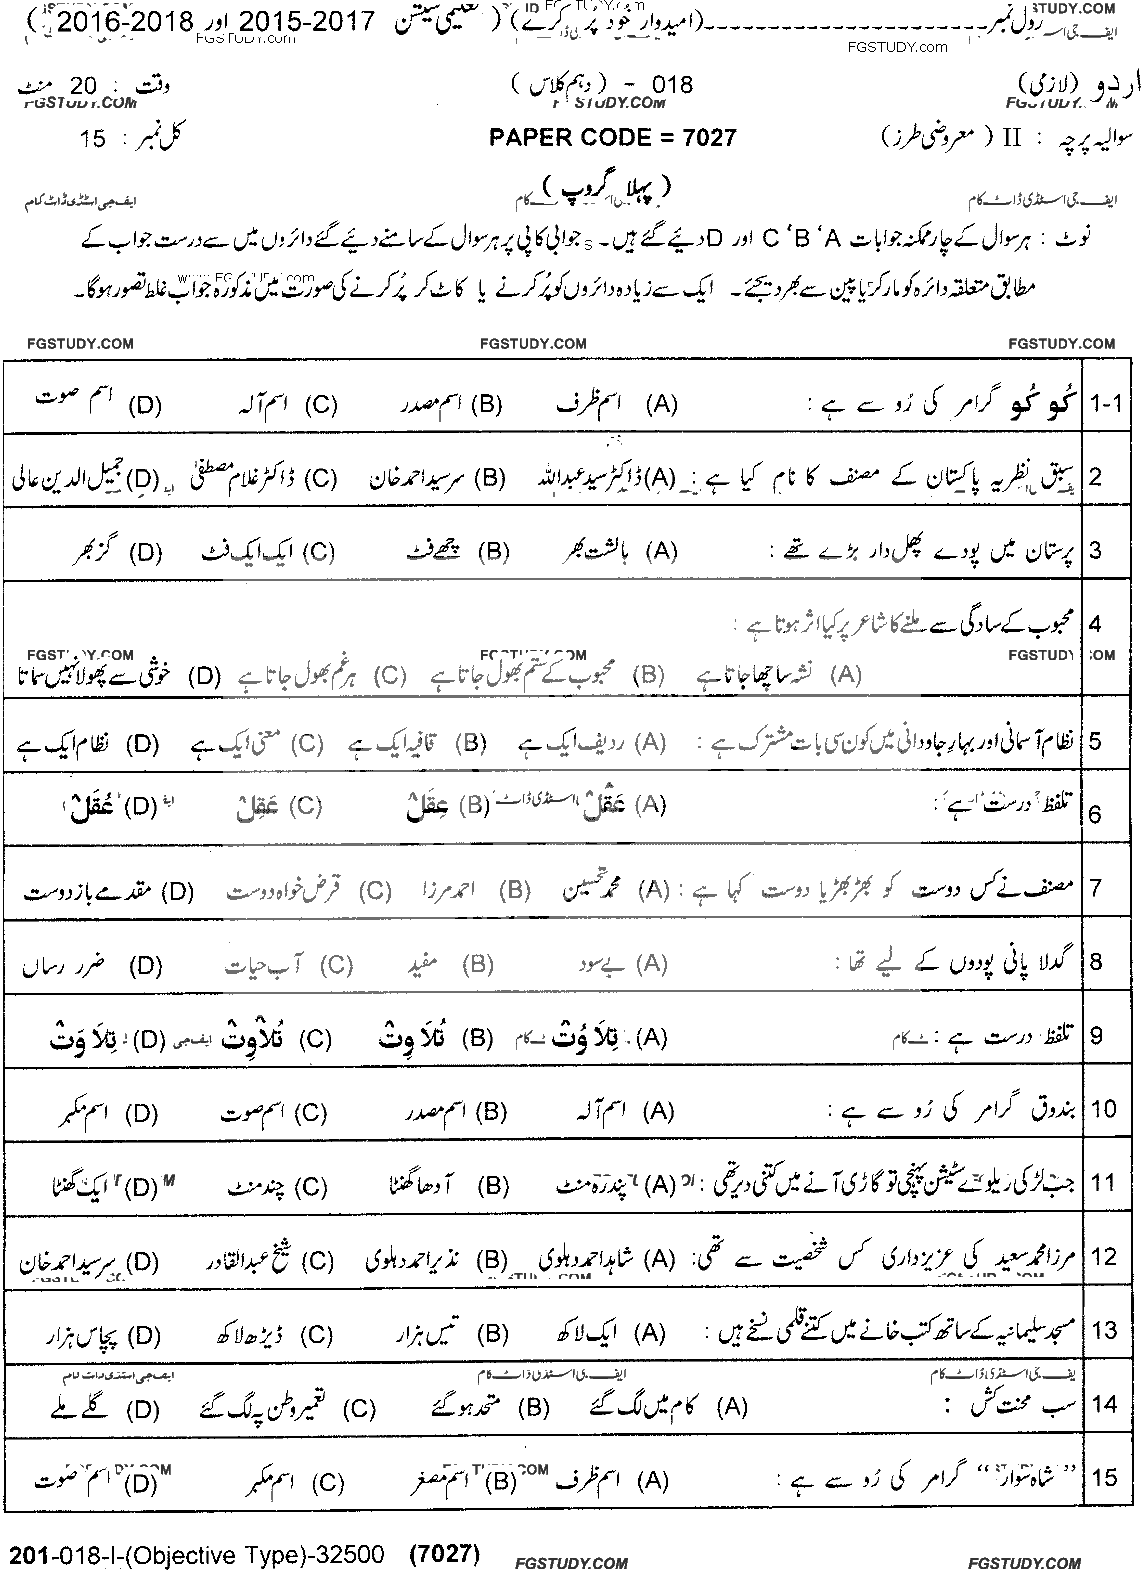 رول نمبر (امیدوار خود پر کرے) ( تعلیمی سیشن 2015-2017 اور 2016-2018 )
FGSTUDY.com FGSTUDY.com
اردو (لازمی) 018 - ( دہم کلاس ) وقت : 20 منٹ
FGSTUDY.COM
سوالیہ پرچہ : II ( معروضی طرز) PAPER CODE = 7027 کل نمبر : 15
( پہلا گروپ )
ایف جی اسٹڈی ڈاٹ کام ایف جی اسٹڈی ڈاٹ کام
نوٹ : ہر سوال کے چار ممکنہ جوابات A ‘B ‘C اور D دیئے گئے ہیں۔ جوابی کاپی پر ہر سوال کے سامنے دیئے گئے دائروں میں سے درست جواب کے
مطابق متعلقہ دائرہ کو مارکر یا پین سے بھر دیجئے۔ ایک سے زیادہ دائروں کو پُر کرنے یا کاٹ کر پُر کرنے کی صورت میں مذکورہ جواب غلط تصور ہوگا۔
FGSTUDY.COM FGSTUDY.COM FGSTUDY.COM
1-1 کُو کُو گرامر کی رُو سے ہے : (A) اسم ظرف (B) اسم مصدر (C) اسم آلہ (D) اسم صوت
2 سبق نظریہ پاکستان کے مصنف کا نام کیا ہے : (A) ڈاکٹر سید عبداللہ (B) سرسید احمد خان (C) ڈاکٹر غلام مصطفیٰ (D) جمیل الدین عالی
3 پرستان میں پودے پھل دار بڑے تھے : (A) بالشت بھر (B) چھے فٹ (C) ایک ایک فٹ (D) گز بھر
4 محبوب کے سادگی سے ملنے کا شاعر پر کیا اثر ہوتا ہے :
(A) نشہ سا چھا جاتا ہے (B) محبوب کے ستم بھول جاتا ہے (C) ہر غم بھول جاتا ہے (D) خوشی سے پھولا نہیں سماتا
5 نظام آسمانی اور بہار جاودانی میں کون سی بات مشترک ہے : (A) ردیف ایک ہے (B) قافیہ ایک ہے (C) معنی ایک ہے (D) نظام ایک ہے
6 تلفظ درست ہے : (A) عَقْلْ (B) عِقَلْ (C) عَقِلْ (D) عُقَلْ
7 مصنف نے کس دوست کو بھڑ بھڑیا دوست کہا ہے : (A) محمد تحسین (B) احمد مرزا (C) قرض خواہ دوست (D) مقدمے باز دوست
8 گدلا پانی پودوں کے لیے تھا : (A) بے سود (B) مفید (C) آب حیات (D) ضرر رساں
9 تلفظ درست ہے : (A) تِلَاوُتْ (B) تُلَاوِتْ (C) تُلاْوِتْ (D) تِلَاوَتْ
10 بندوق گرامر کی رُو سے ہے : (A) اسم آلہ (B) اسم مصدر (C) اسم صوت (D) اسم مکبر
11 جب لڑکی ریلوے سٹیشن پہنچی تو گاڑی آنے میں کتنی دیر تھی : (A) پندرہ منٹ (B) آدھا گھنٹا (C) چند منٹ (D) ایک گھنٹا
12 مرزا محمد سعید کی عزیز داری کس شخصیت سے تھی: (A) شاہد احمد دہلوی (B) نذیر احمد دہلوی (C) شیخ عبدالقادر (D) سرسید احمد خان
13 مسجد سلیمانیہ کے ساتھ کتب خانے میں کتنے قلمی نسخے ہیں : (A) ایک لاکھ (B) تیس ہزار (C) ڈیڑھ لاکھ (D) پچاس ہزار
14 سب محنت کش : (A) کام میں لگ گئے (B) متحد ہو گئے (C) تعمیر وطن پہ لگ گئے (D) گلے ملے
15 “شاہ سوار” گرامر کی رُو سے ہے : (A) اسم ظرف (B) اسم مصغر (C) اسم مکبر (D) اسم صوت
201-018-I-(Objective Type)-32500 (7027) FGSTUDY.COM FGSTUDY.COM